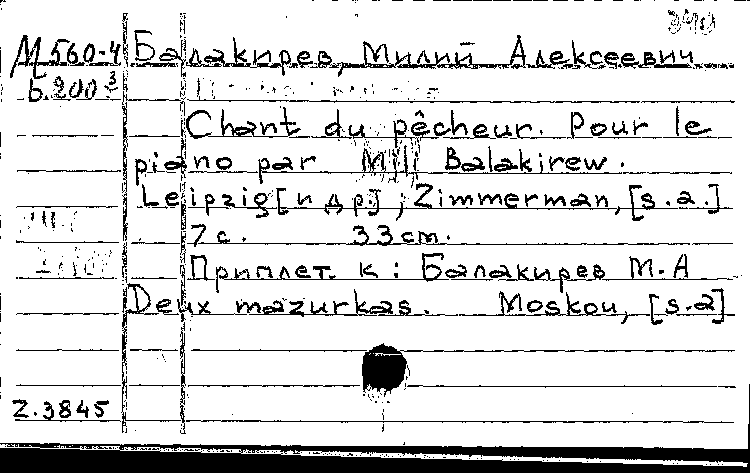 340
М 560-4 Балакирев, Милий Алексеевич
Б.200 3
Chant du pêcheur. Pour le
piano par Mili Balakirew.
Leipzig [и др], Zimmerman, [s.a.]
7 с. 33 cm.
Приплет. к: Балакирев М.А
Deux mazurkas. Moskou, [s.a]
Z.3845